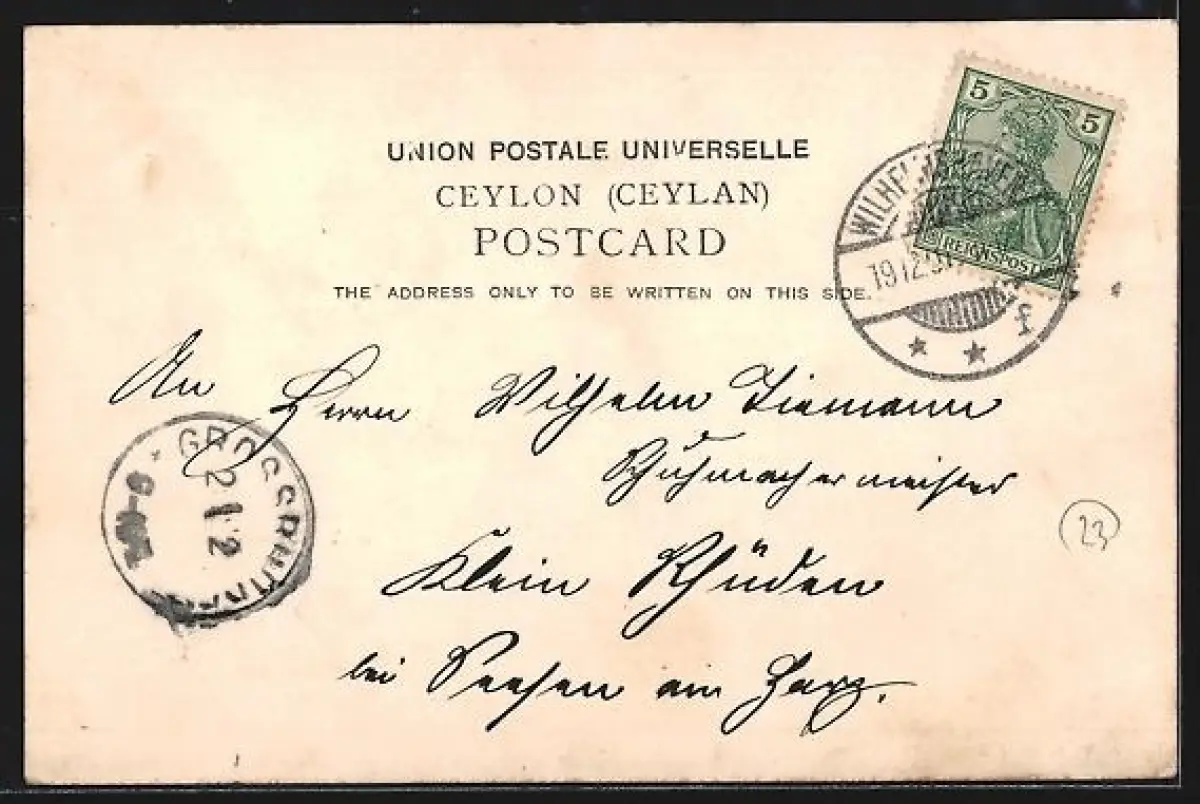 UNION POSTALE UNIVERSELLE
CEYLON (CEYLAN)
POSTCARD
THE ADDRESS ONLY TO BE WRITTEN ON THIS SIDE.
5 5
REICHSPOST
WILHELMSHAVEN
19 12
f
An Herrn Wilhelm Tiemann
Schuhmachermeister
Klein Rhüden
bei Seesen am Harz.
23